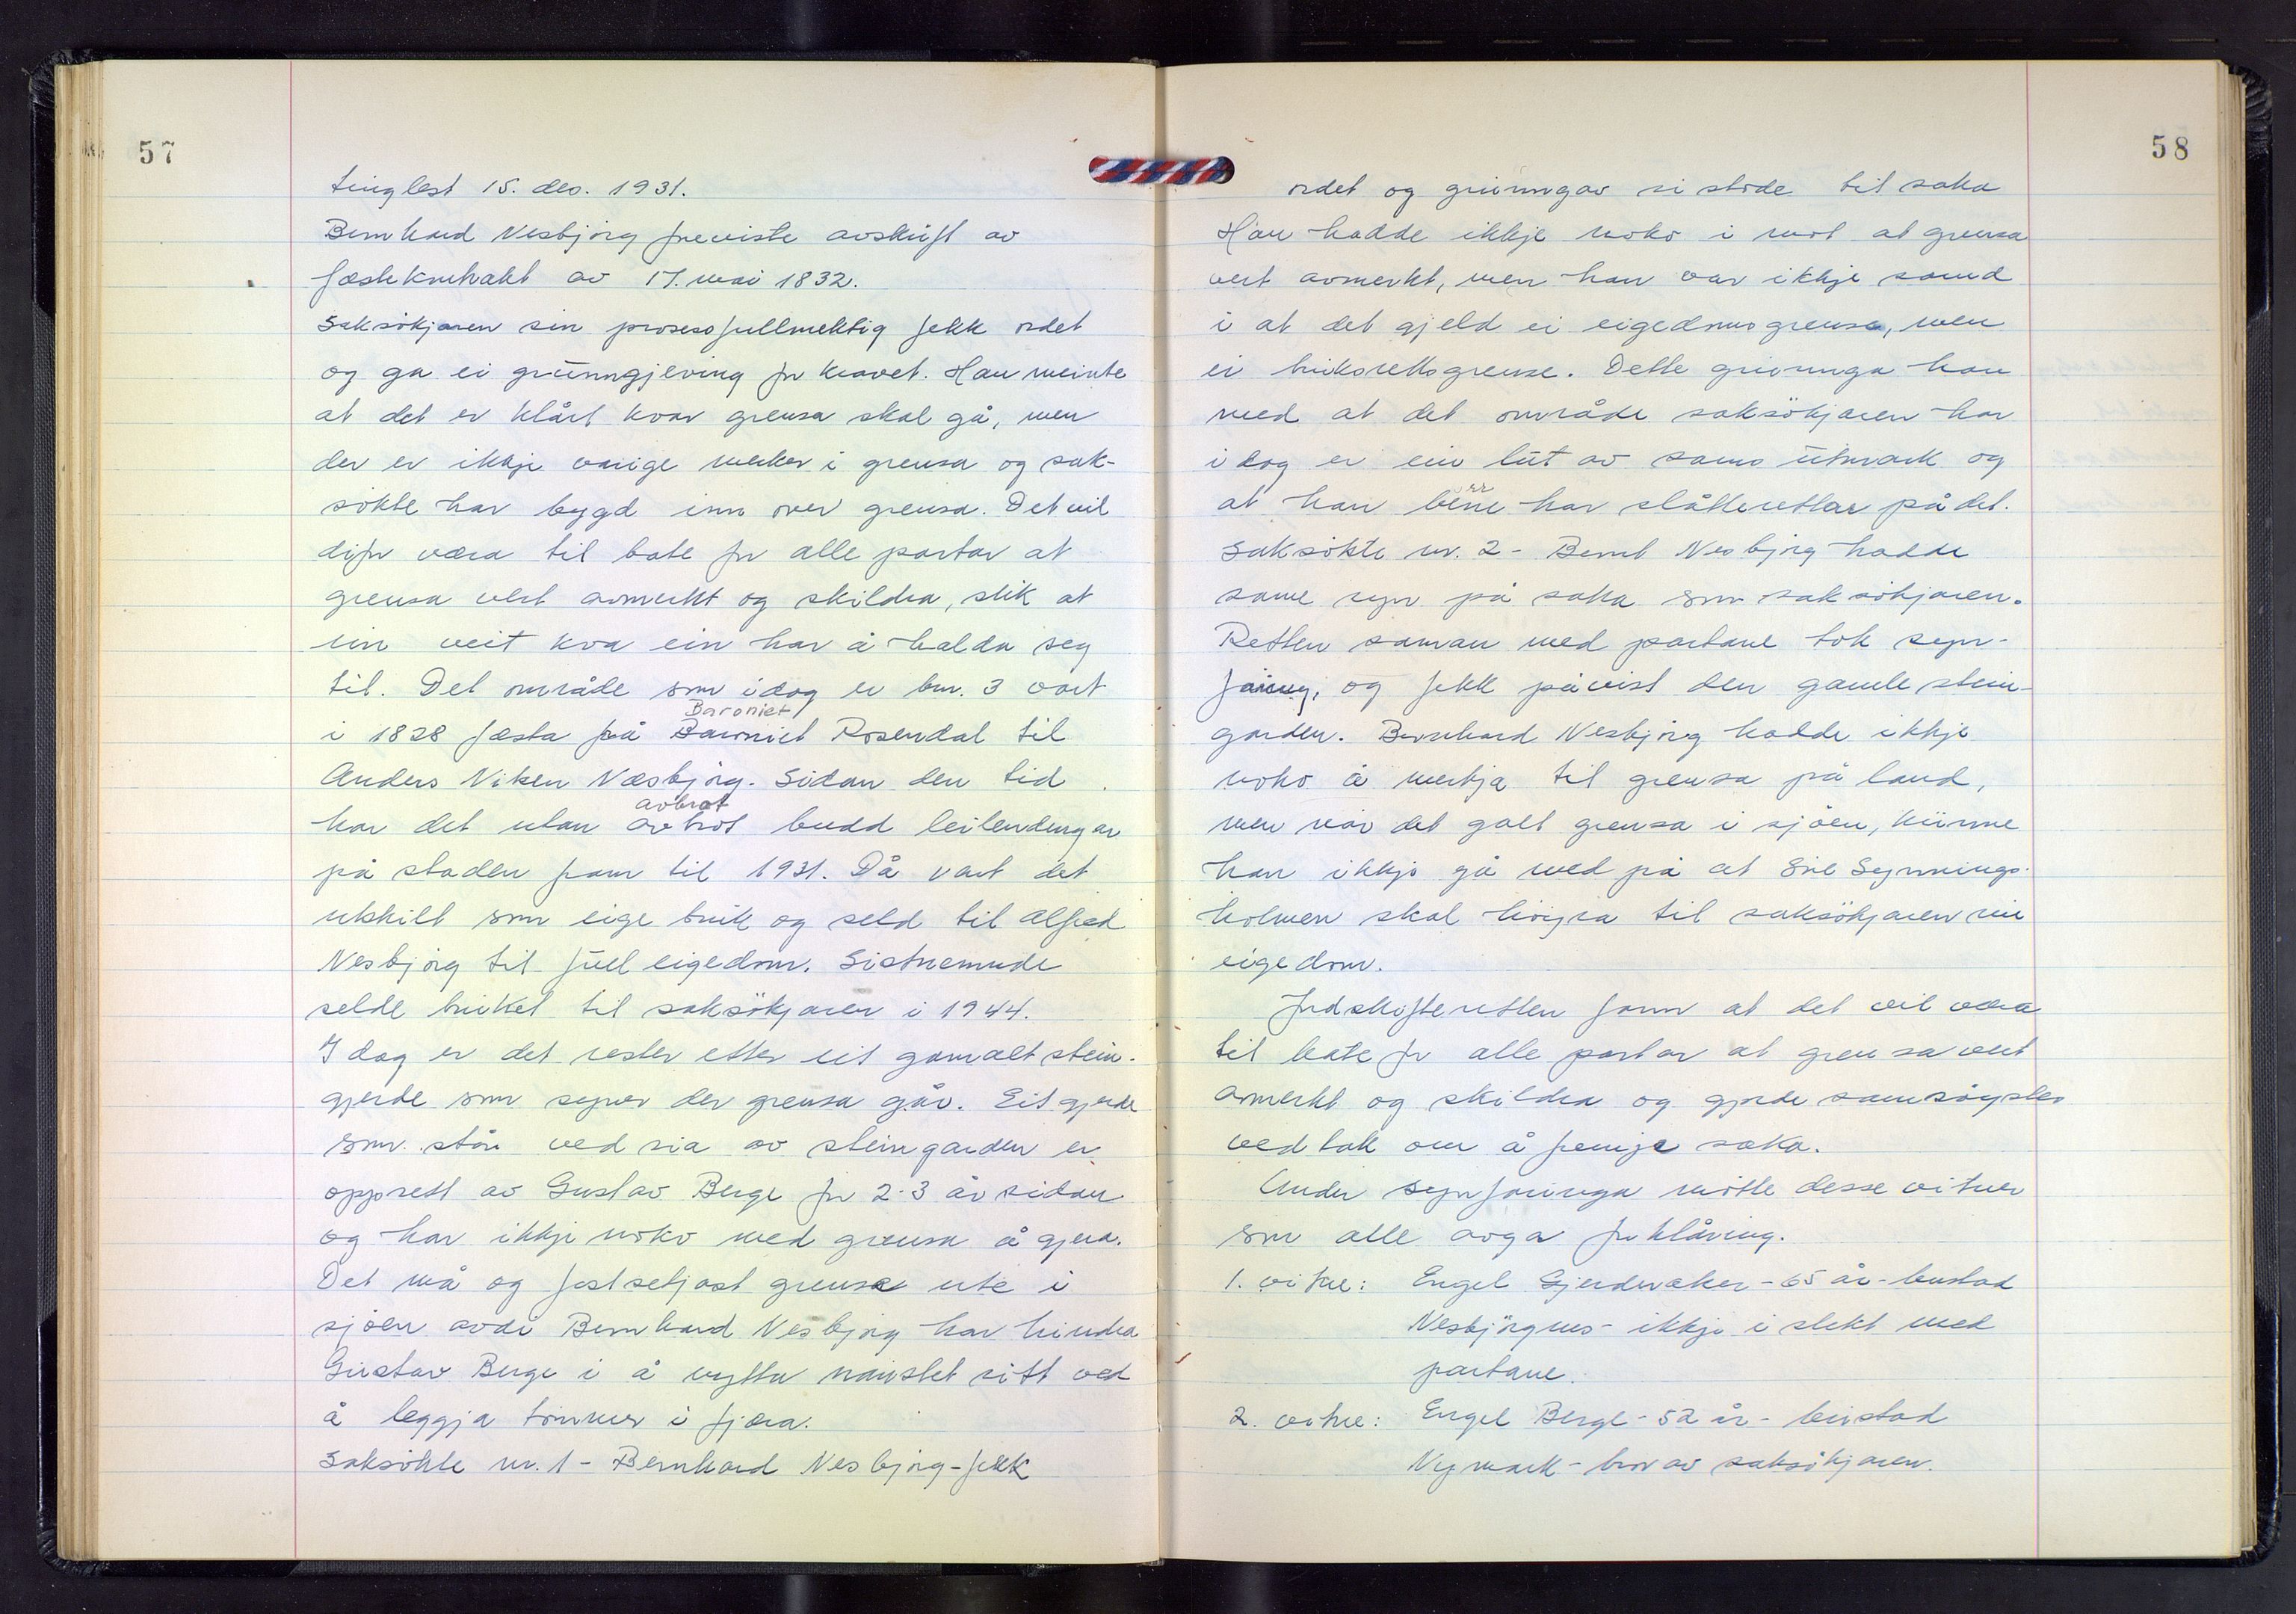 57
tinglest 15. des. 1931.
Bernhard Nesbjørg freviste avskrift av
fæstekontrakt av 17. mai 1832.
Saksökjaren sin prosessfullmektig fekk ordet
og ga ei grunngjeving for kravet. Han meinte
at det er klårt kvar grensa skal gå, men
der er ikkje varige merker i grensa og sak-
sökte har bygd inn over grensa. Det vil
difor væra til bate for alle partar at
grensa vert avmerkt og skildra, slik at
ein veit kva ein har å halda seg
til. Det område som idag er bnr. 3 vart
Baroniet
i 1828 fæsta frå Baroniet Rosendal til
Anders Niksen Næsbjørg. Sidan den tid
avbrot
har det utan avbrot budd leilendingar
på staden fram til 1931. Då vart det
utskilt som eige bruk og seld til Alfred
Nesbjørg til full eigedom. Sistnemnde
selde bruket til saksökjaren i 1944.
I dag er det rester etter eit gamalt stein-
gjerde som syner der grensa går. Eit gjerde
som står ved sia av steingarden er
opprett av Gustav Berge for 2-3 år sidan
og har ikkje noko med grensa å gjera.
Det må og fastsetjast grense ute i
sjøen avdi Bernhard Nesbjørg har hindra
Gustav Berge i å nytta naustet sitt ved
å leggja tømmer i fjæra.
Saksökte nr. 1 - Bernhard Nesbjørg - fekk
58
ordet og grunngav si støde til saka
Han hadde ikkje noko i mot at grensa
vert avmerkt, men han var ikkje samd
i at det gjeld ei eigedomsgrense, men
ei bruksrettsgrense. Dette grunnga han
med at det område saksökjaren har
i dag er ein lut av sams utmark og
at han berre har slåtterettar på det.
Saksökte nr. 2 - Bernt Nesbjørg hadde
same syn på saka som saksökjaren.
Retten saman med partane tok syn-
faring, og fekk påvist den gamle stein-
garden. Bernhard Nesbjørg hadde ikkje
noko å merkja til grensa på land,
men når det galt grensa i sjøen, kunne
han ikkje gå med på at Sil Synnings-
holmen skal höyra til saksökjaren sin
eigedom.
Jordskifteretten fann at det vil væra
til bate for alle partar at grensa vert
avmerkt og skildra og gjorde samrøystes
vedtak om å fremje saka.
Under synfaringa møtte desse vitner
som alle avga forklåring.
1. vitne: Engel Gjerdevaker - 65 år - bustad
Nesbjörgnes - ikkje i slekt med
partane.
2. vitne: Engel Berge - 52 år - bustad
Nymark - bror av saksökjaren.